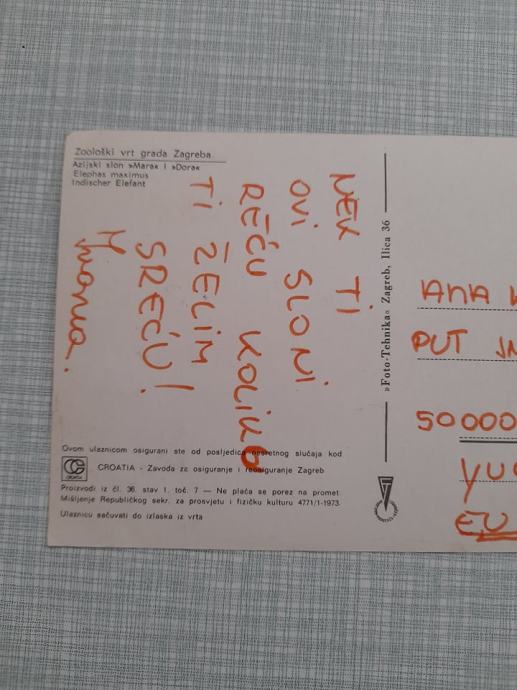 Zoološki vrt grada Zagreba
Azijski slon »Mara« i »Dora«
Elephas maximus
Indischer Elefant
NEK TI
OVI SLONI
REĆU KOLIKO
TI ŽELIM
SREĆU!
»Foto-Tehnika« Zagreb, Ilica 36
ANA
PUT
50000
YU
EU
Ovom ulaznicom osigurani ste od posljedica nesretnog slučaja kod
CROATIA
CROATIA - Zavoda za osiguranje i reosiguranje Zagreb
Proizvodi iz čl. 36. stav 1. toč. 7 — Ne plaća se porez na promet.
Mišljenje Republičkog sekr. za prosvjetu i fizičku kulturu 4771/1-1973.
Ulaznicu sačuvati do izlaska iz vrta